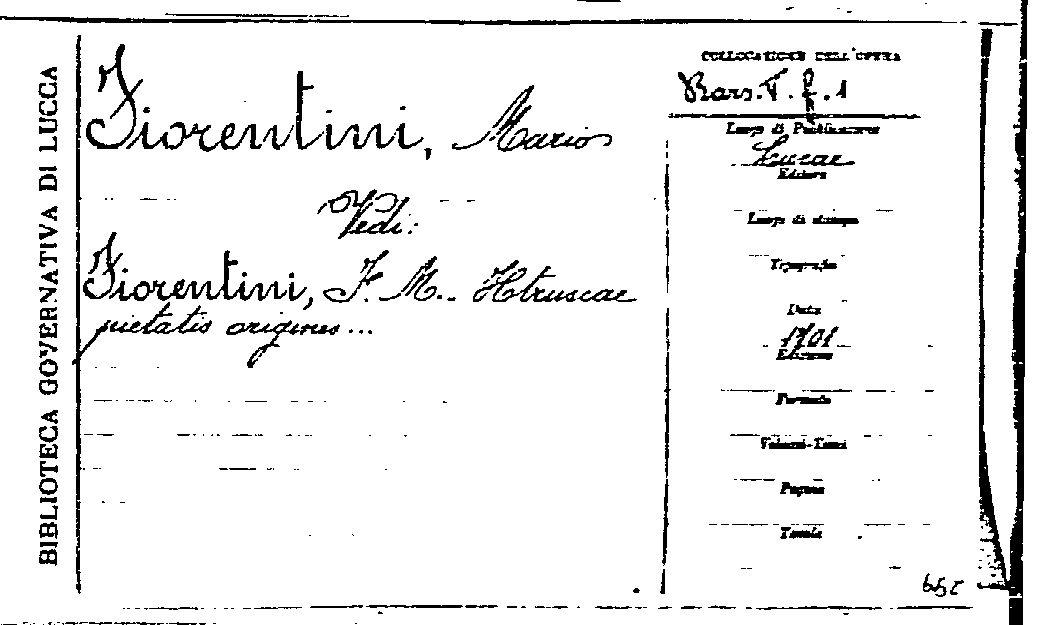 BIBLIOTECA GOVERNATIVA DI LUCCA
Fiorentini, Mario
Vedi:
Fiorentini, F. M. Hetruscae
pietatis origines...
COLLOCAZIONE DELL'OPERA
Bars. F. f. 1
Luogo di Pubblicazione
Lucae
Editore
Luogo di stampa
Tipografia
Data
1701
Edizione
Formato
Volumi-Tomi
Pagine
Tavole